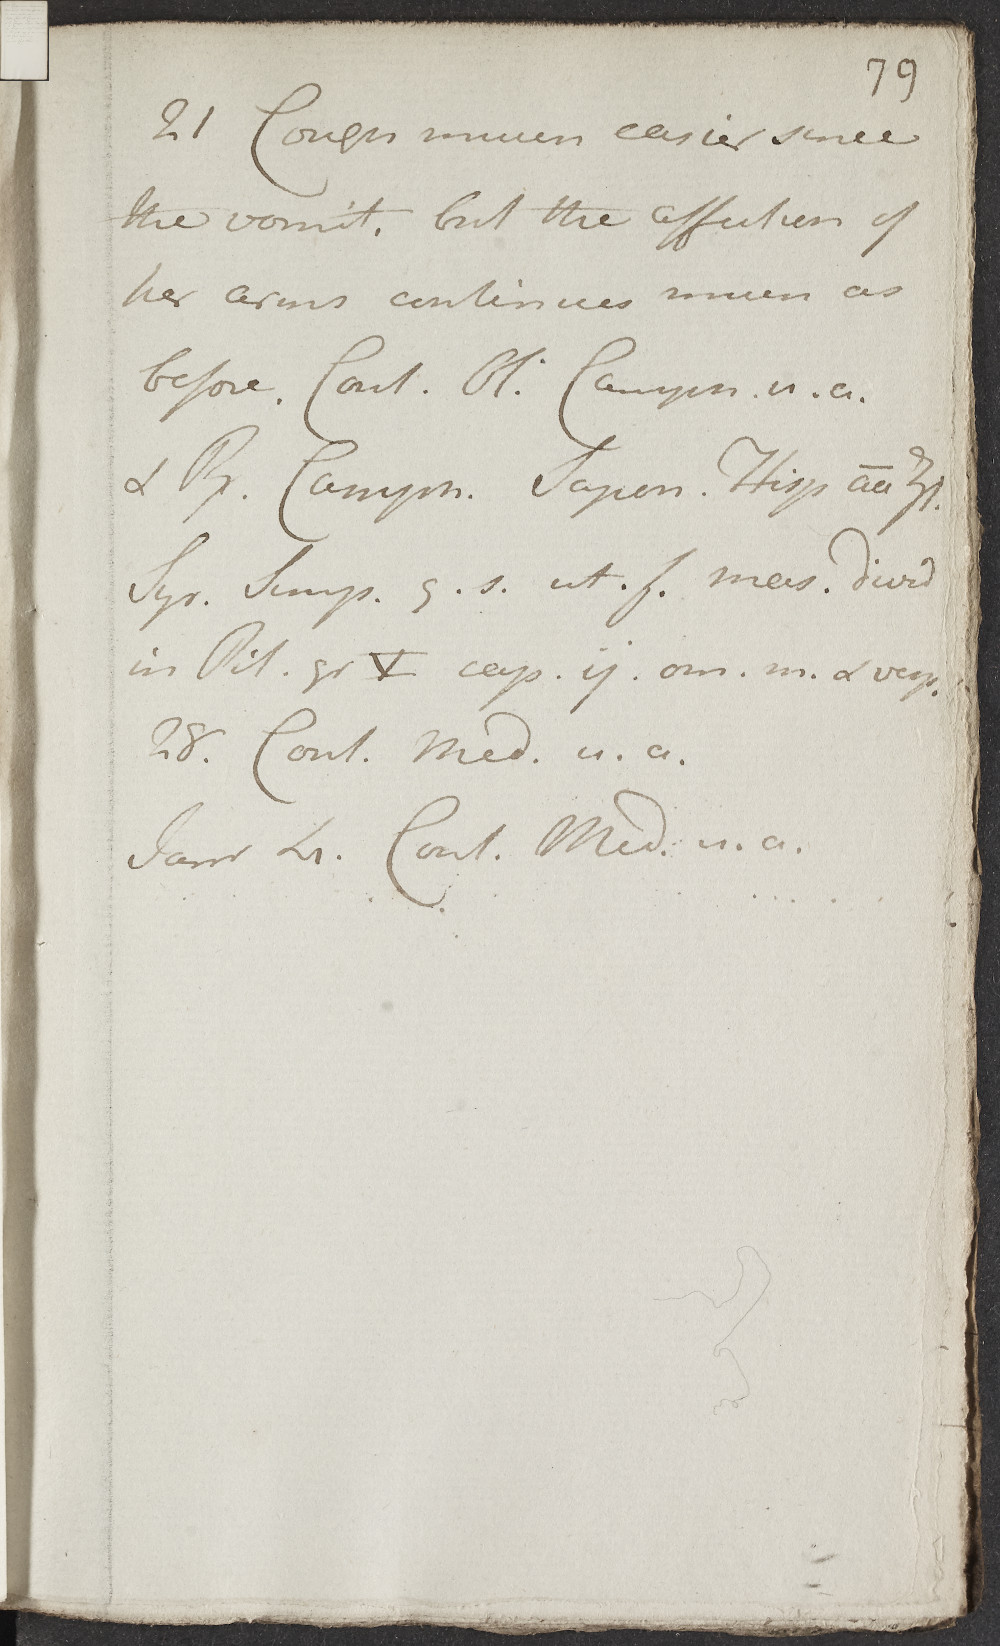 79
21 Cough much easier since
the vomit, but the affection of
her arms continues much as
before. Cont. Ol. Camph. u. a.
& Rx. Camph. Sapon. Hisp āā ʒj.
Syr. Simp. q. s. ut. f. mas. divid
in Pil. gr V cap. ij. om. m. & vesp.
28. Cont. Med. u. a.
Janr Cont. Med. u. a.